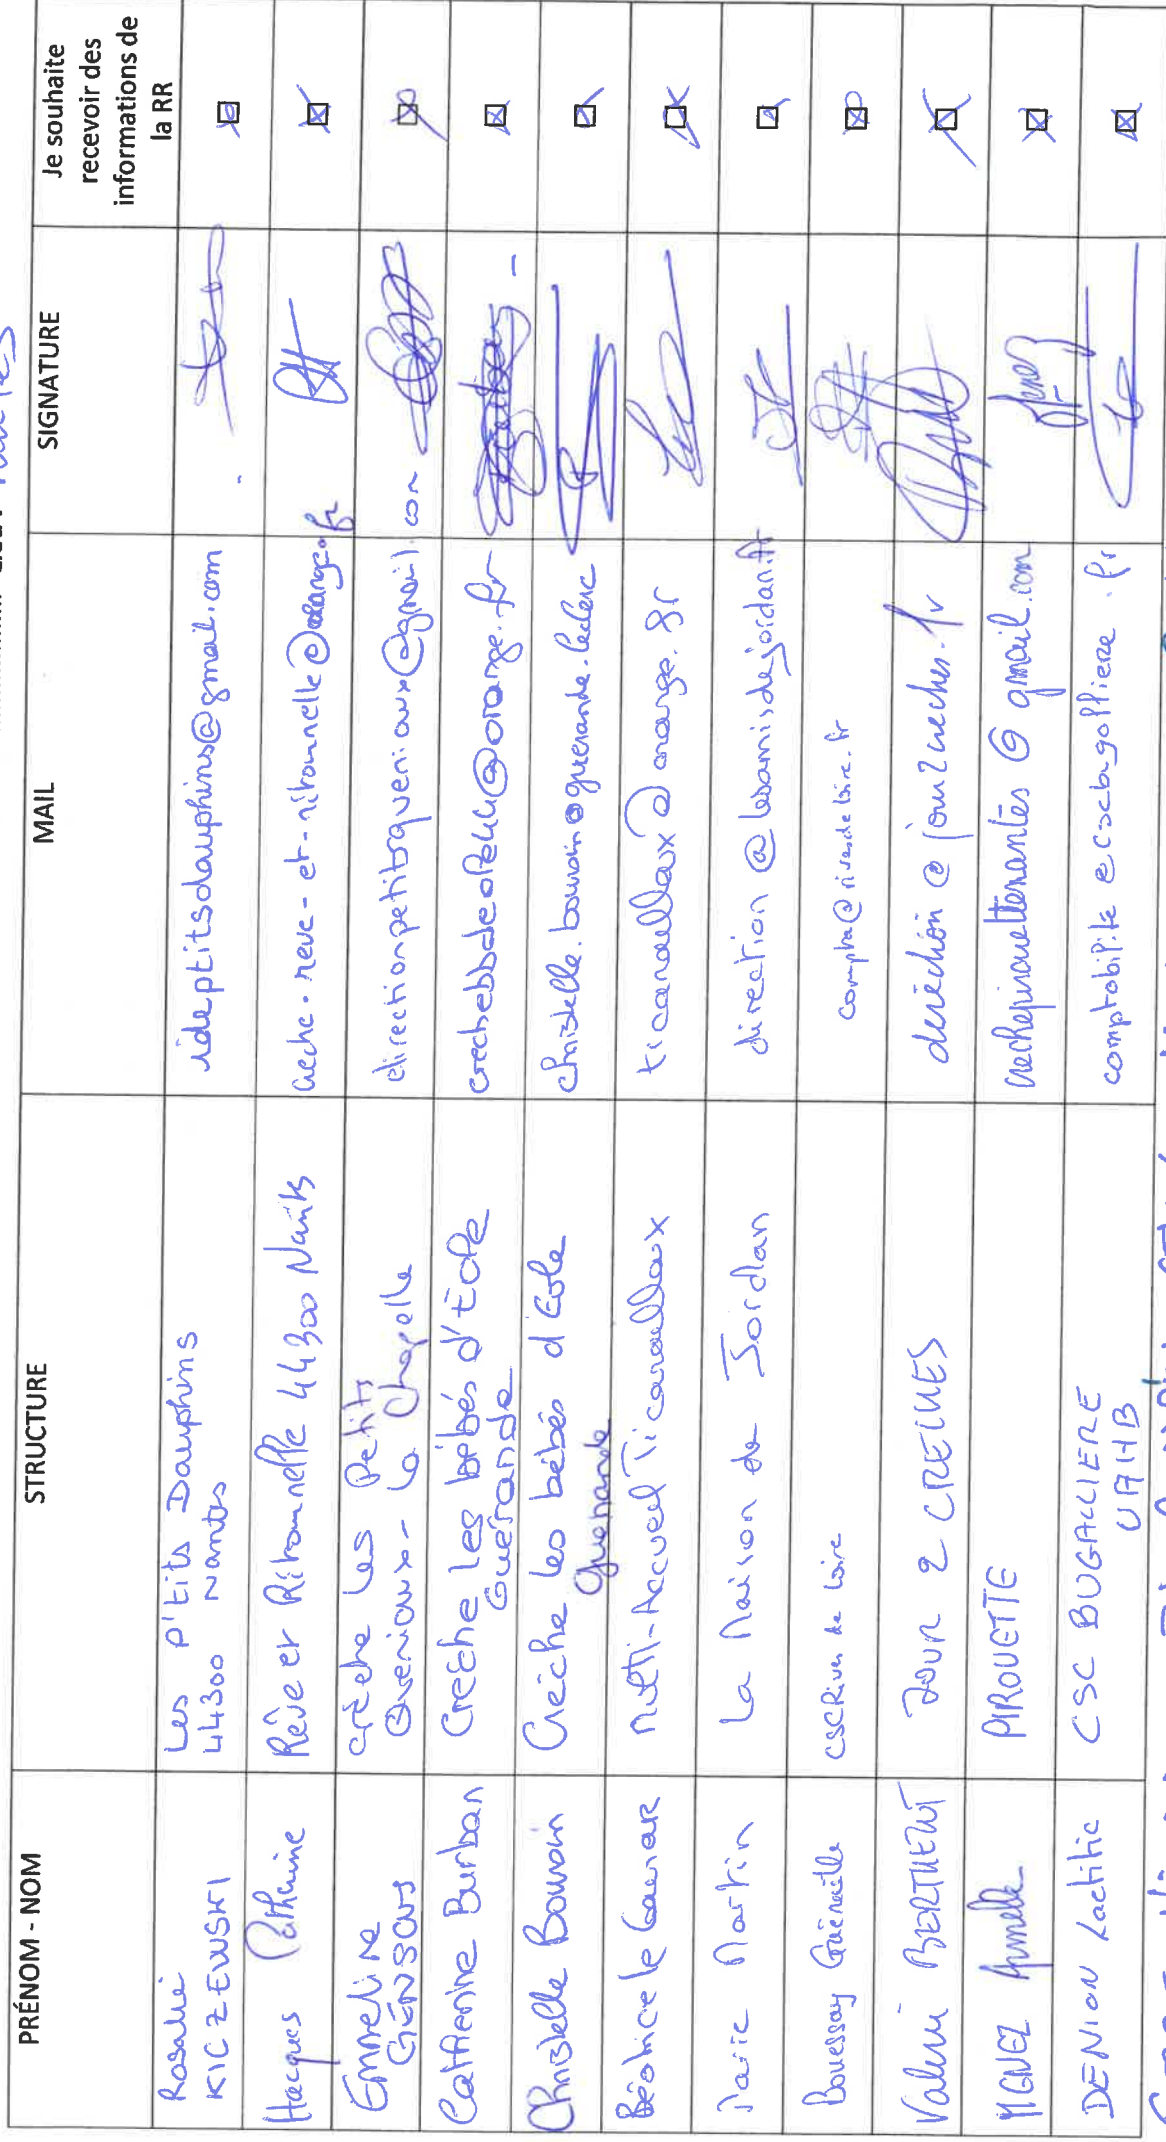 Nantes
PRÉNOM - NOM
STRUCTURE
MAIL
SIGNATURE
Je souhaite
recevoir des
informations de
la RR
Rosalie
KICZEWSKI
Les P'tits Dauphins
44300 Nantes
ideptitsdauphins@gmail.com
Hacques Catherine
Rêve et Ritournelle 44300 Nantes
creche-reve-et-ritournelle@orange.fr
Emmeline
GENSOUS
crèche Les Petits
Queniaux - La Chapelle
directionpetitsqueniaux@gmail.com
Catherine Burban
Creche Les bébés d'École
Guérande
Christelle Bauvain
Crèche Les bébés d'Ecole
Guérande
christelle.bauvain@guerande.leclerc
Béatrice le
Multi-Accueil Ticanaillaux
ticanaillaux@orange.fr
Marie Martin
La Maison de Jordan
direction@lesamisdejordan.fr
Bouessay Gwénaëlle
CSC Rives de Loire
compta@rivesdeloire.fr
Valérie
JOUR 2 CRECHES
direction@jour2creches.fr
MIGNEZ Armelle
PIROUETTE
crechepirouettenantes@gmail.com
DENION Laetitia
CSC BUGALLIERE
UAHB